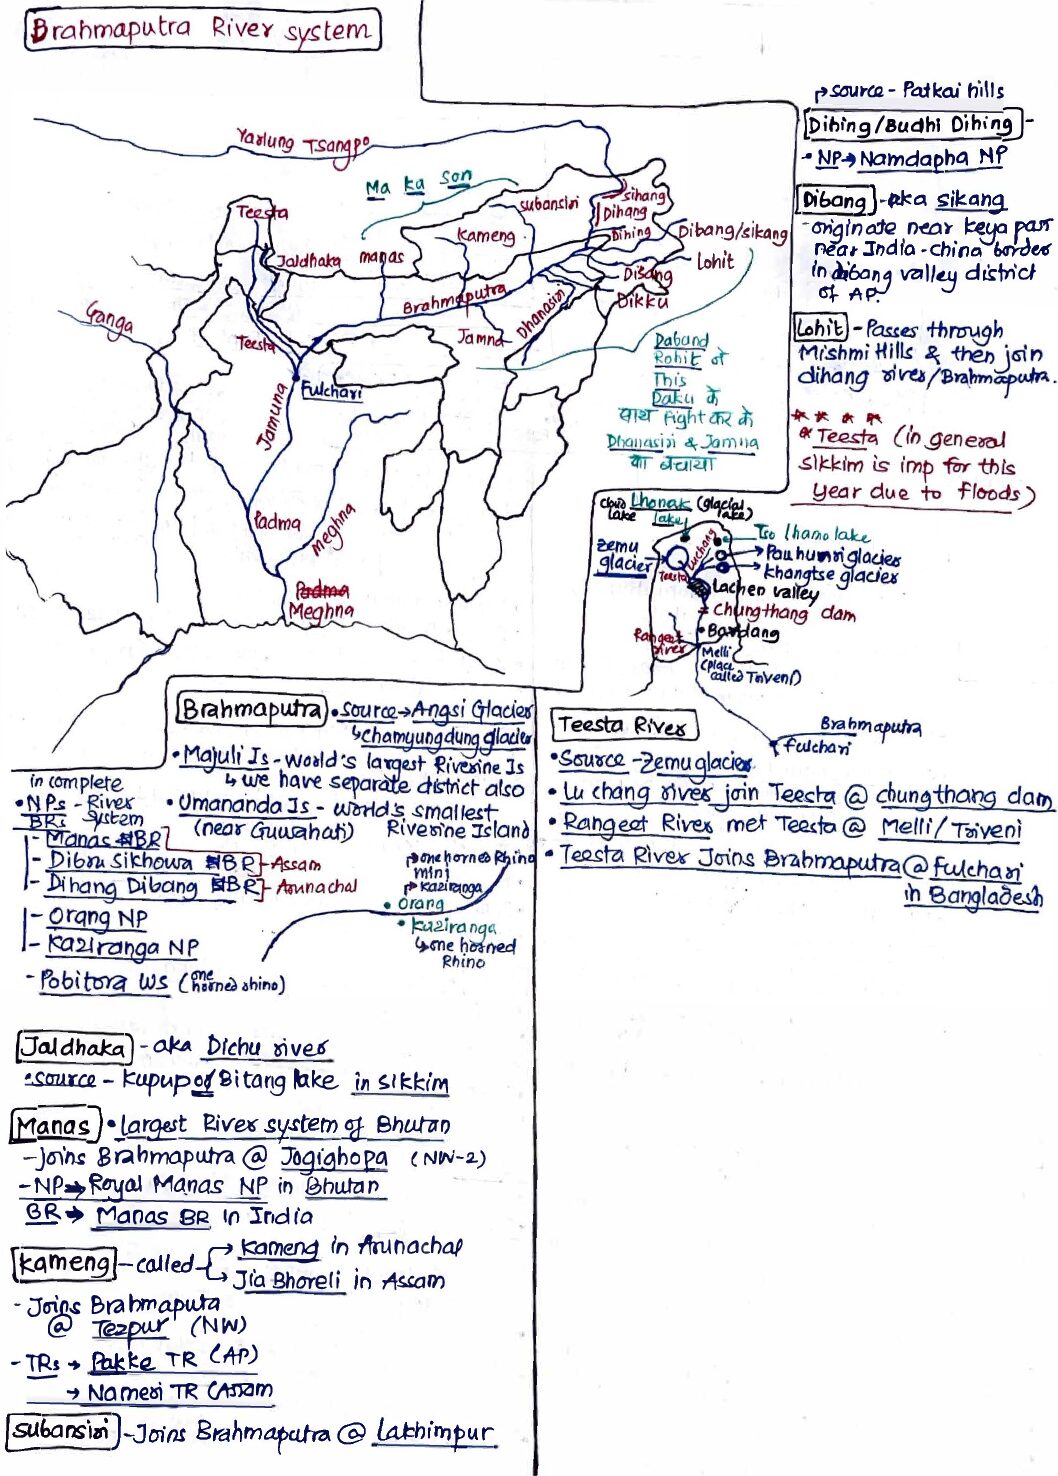 Brahmaputra River system
Yarlung Tsangpo
Ma ka son
Teesta
Jaldhaka
manas
Kameng
subansiri
sihang
Dihang
Dihing
Dibang/sikang
Lohit
Disang
Dikku
Brahmaputra
Jamna
Dhanasiri
Ganga
Teesta
Fulchari
Jamuna
Padma
meghna
Padma
Meghna
Daband
Rohit ने
This
Daku के
साथ Fight कर के
Dhanasiri & Jamna
को बचाया
source - Patkai hills
Dihing/Budhi Dihing -
• NP → Namdapha NP
Dibang - aka sikang
- originate near keya pass
near India-china border
in dibang valley district
of AP.
Lohit - Passes through
Mishmi Hills & then join
dihang river/Brahmaputra.
* * * *
* Teesta (in general
sikkim is imp for this
year due to floods)
Lhonak (glacial
lake lake lake)
Tso lhamo lake
zemu
glacier
Lachang
Pauhunri glacier
Khangtse glacier
Teesta
Lachen valley
Chungthang dam
• Bardang
Rangeet
river
Melli
(place
called Triveni)
Brahmaputra
fulchari
Brahmaputra • source → Angsi Glacier
↳ chamyungdung glacier
• Majuli Is - world's largest Riverine Is
↳ we have separate district also
• Umananda Is - world's smallest
(near Guwahati) Riverine Island
in complete
• NPs - River
BRs System
- Manas BR
- Dibru Sikhowa BR - Assam
- Dihang Dibang BR - Arunachal
- Orang NP
- Kaziranga NP
- Pobitora WS (one horned rhino)
→ one horned Rhino
mini
→ Kaziranga
• Orang
• Kaziranga
↳ one horned
Rhino
Teesta River
• Source - Zemu glacier
• Lu chang river join Teesta @ chungthang dam
• Rangeet River met Teesta @ Melli/Triveni
• Teesta River Joins Brahmaputra @ Fulchari
in Bangladesh
Jaldhaka - aka Dichu river
• source - Kupup or Bitang lake in sikkim
Manas • Largest River system of Bhutan
- Joins Brahmaputra @ Jogighopa (NW-2)
- NP → Royal Manas NP in Bhutan
BR → Manas BR in India
Kameng - called → Kameng in Arunachal
↳ Jia Bhoreli in Assam
- Joins Brahmaputa
@ Tezpur (NW)
- TRs → Pakke TR (AP)
→ Nameri TR (Assam
subansiri - Joins Brahmaputra @ Lakhimpur